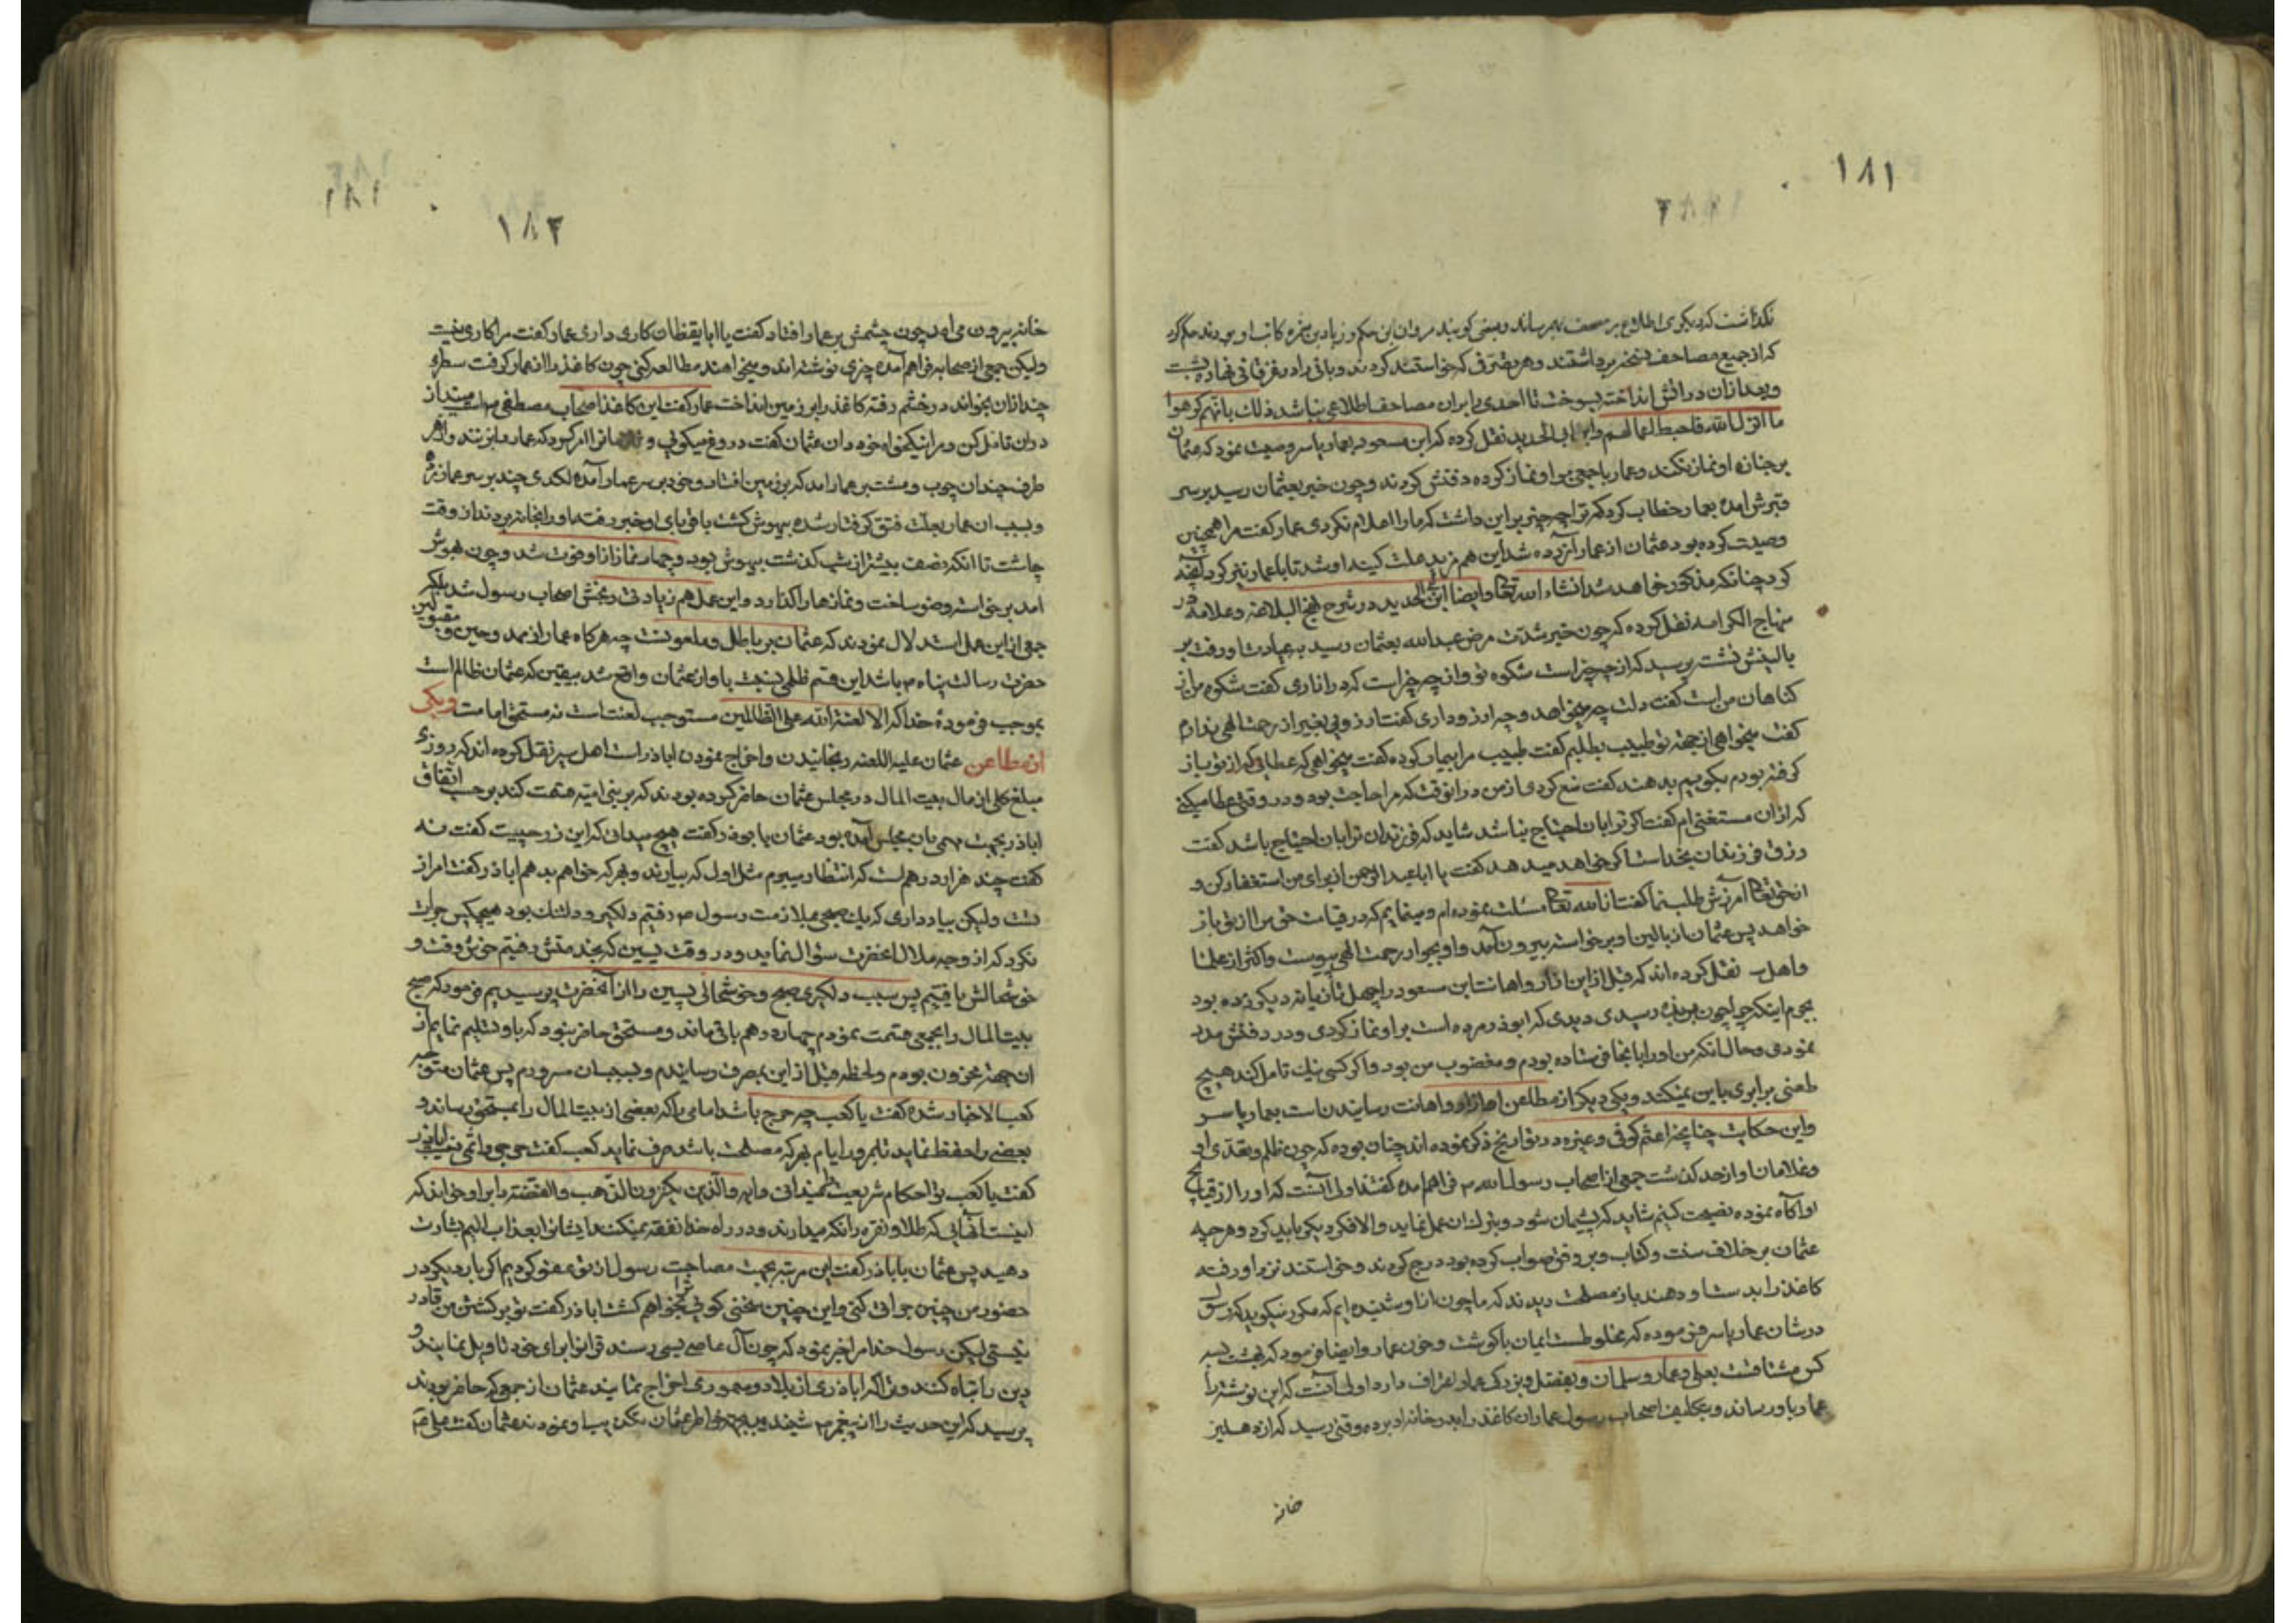 ۱۸۱
نگذاشت که دیگری اطلاع بر مصحف بهم رساند و بعضی گویند مروان بن حکم و زیاد بن کاتب او بودند حکم کرد
که از جمیع مصاحف نسخه برداشتند و هر تصرف که خواستند کردند و باقی را در نهاده
و بعد از آن در آتش انداخت بسوخت تا احدی را بران مصاحف اطلاعی نباشد ذلك بانهم کرهوا
ما انزل الله فاحبط اعمالهم و ابن ابی الحدید نقل کرده که ابن مسعود بعمار یاسر وصیت نمود که عثمان
بر جنازه او نماز نکند و عمار با جمعی بر او نماز کرده دفنش کردند و چون خبر بعثمان رسید بر سر
قبرش آمده بعمار خطاب کرد که ترا چه چیز بر این داشت که ما را اعلام نکردی عمار گفت مرا همچنین
وصیت کرده بود عثمان از عمار آزرده شد این هم مزید علت کینه او شد تا با عمار نیز کرد آنچه
کرد چنانکه مذکور خواهد شد انشاء الله تعا و ایضا ابن ابی الحدید در شرح نهج البلاغه و علامه در
منهاج الکرامه نقل کرده که چون خبر شدت مرض عبدالله بعثمان رسید به عیادت او رفت بر
بالینش نشت پرسید که از چه چیز است شکوه تو و از چه چیز است که در آزاری گفت شکوه من از
کناهان من است گفت دلت چه میخواهد و چه آرزو داری گفت آرزویی بغیر از رحمت الهی ندارم
گفت میخواهی از جهة تو طبیب بطلبم گفت طبیب مرا بیمار کرده گفت میخواهی که عطایی که از تو باز
گرفته بودم بگویم بدهند گفت منع کردی از من در انوقت که مرا حاجت بود و در وقتی عطا میکنی
که از ان مستغنی ام گفت اگر ترا بان احتیاج نباشد شاید که فرزندان ترا بان احتیاج باشد گفت
رزق فرزندان بخداست اگر خواهد میدهد گفت یا ابا عبد الرحمن از برای من استغفار کن و
از حق تعا آمرزش طلب نما گفت از الله تعا مسئلت نموده ام و مینمایم که در قیامت حق مرا از تو باز
خواهد پس عثمان از بالین او برخواسته بیرون آمد و او بجوار رحمت الهی پیوست و اکثر از علما
و اهل سیر نقل کرده اند که قبل از این آزار و اهانت ابن مسعود را چهل تازیانه دیگر زده بود
بجرم اینکه چرا چون بربذه رسیدی دیدی که ابوذر مرده است بر او نماز کردی و در دفنش مدد
نمودی و حال آنکه من او را بانجا فرستاده بودم و مغضوب من بود و اگر کسی نیك تامل کند هیچ
طعنی برابری باین نمیکند و یکی دیگر از مطاعن او آزار و اهانت رسانیدن است بعمار یاسر
و این حکایت چنانچه اعثم کوفی و غیره در تواریخ ذکر نموده اند چنان بوده که چون ظلم و تعدی او
و غلامان او از حد گذشت جمعی از اصحاب رسول الله فراهم امده گفتند اولی آنست که او را از قبایح
او آگاه نموده نصیحت کنیم شاید که پشیمان شود و بترك ان عمل نماید و الا فکر دیگر باید کرد و هر چه
عثمان بر خلاف سنت و کتاب و بر وفق صواب کرده بود درج کردند و خواستند نزد او رفته
کاغذ را بدست او دهند باز مصلحت دیدند که ما چون از او شنیده ایم که مکرر میگوید که رسول
در شان عمار یاسر فرموده که مخلوطست ایمان با گوشت و خون عمار و ایضا فرمود که بهشت بسه
کس مشتاقست بعلی و عمار و سلمان و بفضل و بزرگی عمار اعتراف دارد اولی آنست که این نوشته را
عمار باو رساند و بتکلیف اصحاب رسول عمار ان کاغذ را بدر خانه او برده وقتی رسید که از دهلیز
خانه
۱۸۲
خانه بیرون می آمد چون چشمش بر عمار افتاد گفت یا ابا یقظان کاری داری عمار گفت مرا کاری نیست
ولیکن جمعی از صحابه فراهم آمده چیزی نوشته اند و میخواهند مطالعه کنی چون کاغذ را از عمار گرفت سطری
چند ازان بخواند در خشم رفته کاغذ را بر زمین انداخت عمار گفت این کاغذ اصحاب مصطفی است مینداز
در ان تامل کن و مرا نیکخواه خود دان عثمان گفت دروغ میگویی و غلامانرا امر کرد که عمار را بزنند و از هر
طرف چندان چوب و مشت بر عمار امد که بر زمین افتاد و خود بر سر عمار آمده لکدی چند بر سر عمار زد
و بسبب ان عمار بعلت فتق گرفتار شده بیهوش گشت باقربای او خبر رفته او را بخانه بردند از وقت
چاشت تا انکه نصف بیشتر از شب گذشت بیهوش بود و چهار نماز از او فوت شد و چون بهوش
امد برخواسته وضو ساخت و نمازها را گذارد و این عمل هم زیادتی رنجش اصحاب رسول شد بلکه
جمعی از این عمل استدلال نمودند که عثمان بر باطل و ملعونست چه هرگاه عمار از ممدوحین و مقبولین
حضرت رسالت پناه باشد این قسم ظلمی نسبت باو از عثمان واقع شد بیقین که عثمان ظالم است
بموجب فرموده خدا که الا لعنة الله علی الظالمین مستوجب لعنت است نه مستحق امامت و یکی
از مطاعن عثمان علیه اللعنه رنجانیدن و اخراج نمودن اباذر است اهل سیر نقل کرده اند که روزی
مبلغ کلی از مال بیت المال در مجلس عثمان حاضر کرده بودند که بر بنی امیه قسمت کند بر حسب اتفاق
اباذر بجهت بان مجلس آمده بود عثمان با بوذر گفت هیچ میدانی که این زر چیست گفت نه
گفت چند هزار درهم است که انتظار میبرم مثل اول که بیارند و بهر که خواهم بدهم اباذر گفت امر از
تست ولیکن بیاد داری که یك صبحی بملازمت رسول رفتیم دلگیر و دلتنك بود هیچکس جرات
نکرد که از وجه ملال آنحضرت سؤال نماید و در وقت پسین که بخدمتش رفتیم خوش وقت و
خوشحالش یافتیم پس سبب دلگیری صبح و خوشحالی پسین را از آنحضرت پرسیدیم فرمود که صبح
بیت المال را بجمعی قسمت نمودم چهار درهم باقی ماند و مستحق حاضر نبود که باو تسلیم نمایم از
ان جهة محزون بودم و لحظه قبل از این بمصرف رسانیدم و بسبب ان مسرورم پس عثمان متوجه
کعب الاحبار شده گفت یا کعب چه حرج باشد امامی را که بعضی از بیت المال را بمستحق رساند و
بعضی را حفظ نماید تا بمرور ایام بهر که مصلحت باشد صرف نماید کعب گفت حرجی و اثمی نیست اباذر
گفت یا کعب تو احکام شریعت را چه میدانی و ایه و الذین یکنزون الذهب و الفضة را بر او خواند که
اینست آنهایی که طلا و نقره را نگه میدارند و در راه خدا نفقه نمیکنند ایشانرا بعذاب الیم بشارت
دهید پس عثمان با اباذر گفت این مرتبه بجهت مصاحبت رسول از تو عفو کردیم اگر بار دیگر در
حضور من چنین جراتی کنی و این چنین سخنی گوئی ترا بخواهم کشت اباذر گفت تو بر کشتن من قادر
نیستی لیکن رسول خدا مرا خبر نمود که چون آل عاص بسی رسند قرانرا برای خود تاویل نمایند و
دین را تباه کنند و ترا که اباذری از بلاد و معموری اخراج نمایند عثمان از جمعی که حاضر بودند
پرسید که این حدیث را از پیغمبر شنیدید بجهة خاطر عثمان نمودند عثمان گفت علی
۱۸۱